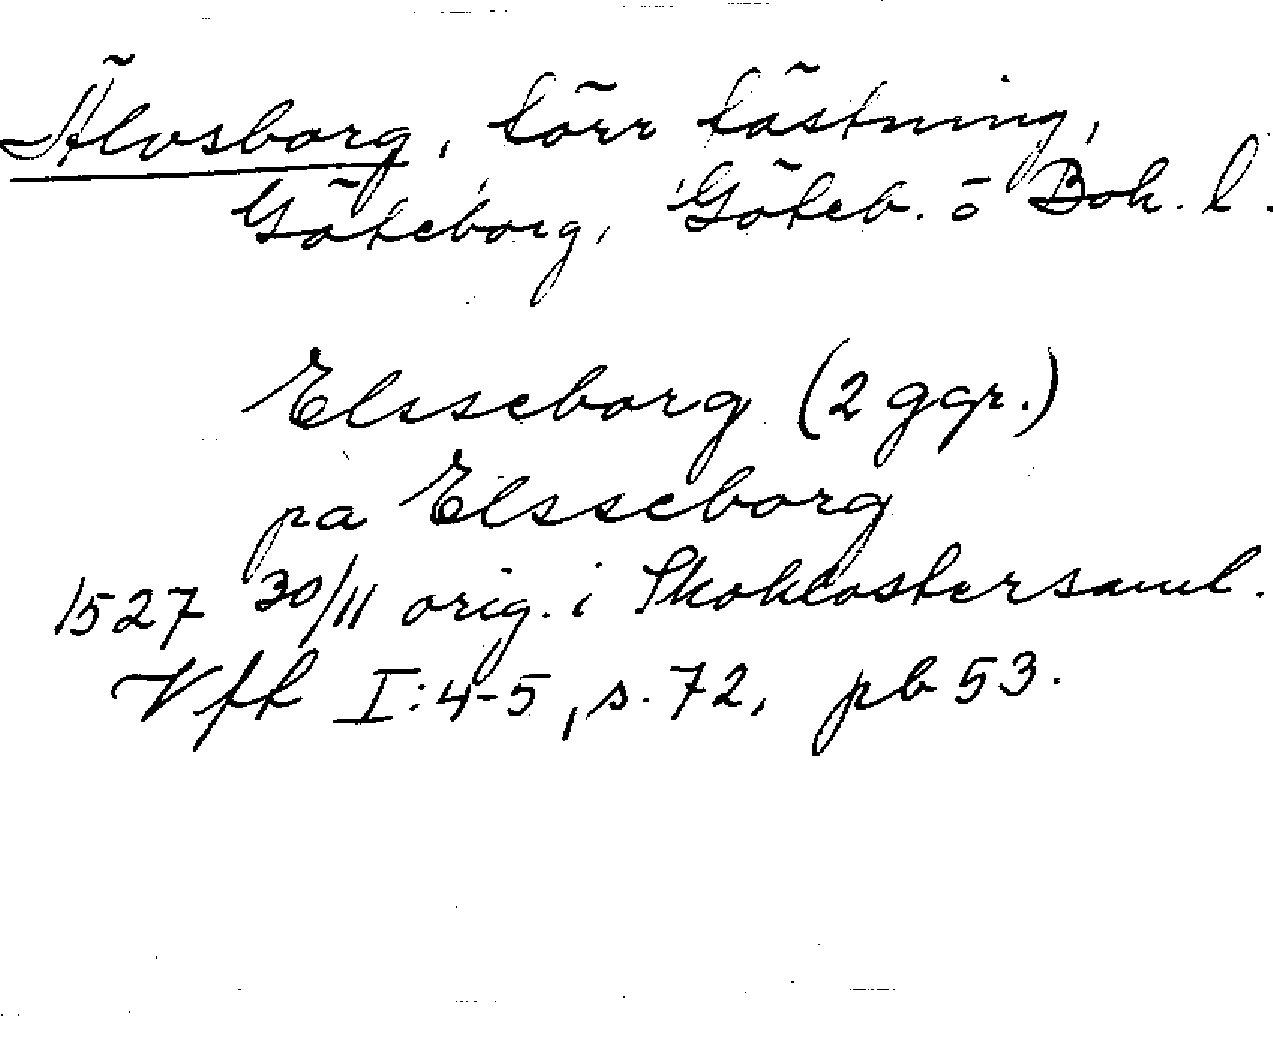 Älvsborg, förr fästning,
Göteborg, Göteb. o Boh. l.
Elsseborg (2 ggr.)
pa Elsseborg
1527 30/11 orig. i Skoklostersaml.
Vfk I:4-5, s. 72, pb 53.